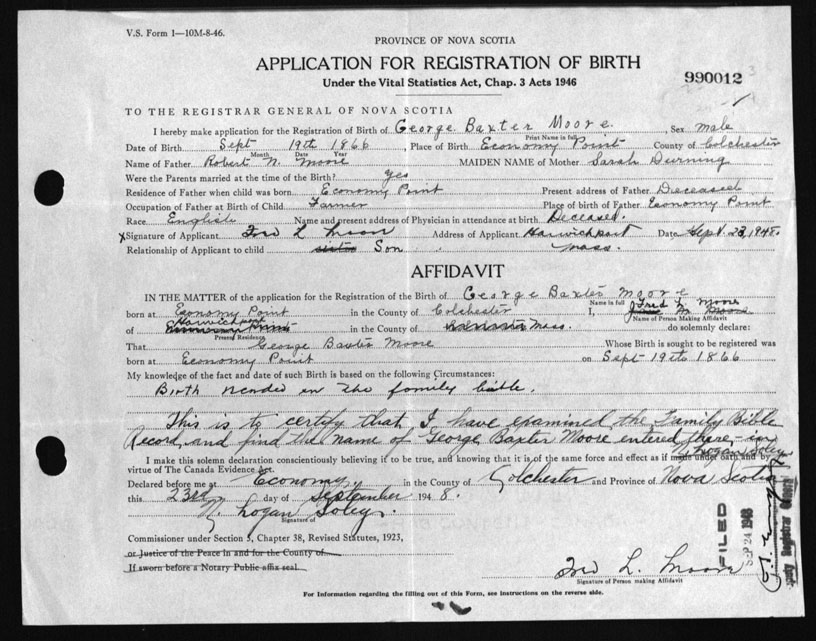 V.S. Form 1—10M-8-46.
PROVINCE OF NOVA SCOTIA
APPLICATION FOR REGISTRATION OF BIRTH
Under the Vital Statistics Act, Chap. 3 Acts 1946
990012
TO THE REGISTRAR GENERAL OF NOVA SCOTIA
I hereby make application for the Registration of Birth of George Baxter Moore Sex male
Print Name in full
Date of Birth Sept 19th 1866, Place of Birth Economy Point County of Colchester
Month Date Year
Name of Father Robert N. Moore MAIDEN NAME of Mother Sarah Durning
Were the Parents married at the time of the Birth? Yes
Residence of Father when child was born Economy Point Present address of Father Deceased
Occupation of Father at Birth of Child Farmer Place of birth of Father Economy Point
Race English Name and present address of Physician in attendance at birth Deceased.
x Signature of Applicant Fred L Moore Address of Applicant Harwichport Date Sept. 23, 1948.
Relationship of Applicant to child sister Son Mass.
AFFIDAVIT
IN THE MATTER of the application for the Registration of the Birth of George Baxter Moore
Name in full Fred L. Moore
born at Economy Point in the County of Colchester I, M Moore
Name of Person Making Affidavit
Harwichport
of Economy Point in the County of Mass. do solemnly declare:
Present Residence
That George Baxter Moore Whose Birth is sought to be registered was
born at Economy Point on Sept 19th 1866
My knowledge of the fact and date of such Birth is based on the following Circumstances:
Birth recorded in the family bible.
This is to certify that I have examined the Family Bible
Record and find the name of George Baxter Moore entered there-in
N. Logan Soley
I make this solemn declaration conscientiously believing it to be true, and knowing that it is of the same force and effect as if made under oath and by
virtue of The Canada Evidence Act.
Declared before me at Economy, in the County of Colchester and Province of Nova Scotia
this 23rd day of September 1948.
N. Logan Soley.
Signature of
Commissioner under Section 5, Chapter 38, Revised Statutes, 1923,
or Justice of the Peace in and for the County of
If sworn before a Notary Public affix seal
Fred L. Moore
Signature of Person making Affidavit
FILED
SEP 24 1948
For Information regarding the filling out of this Form, see instructions on the reverse side.